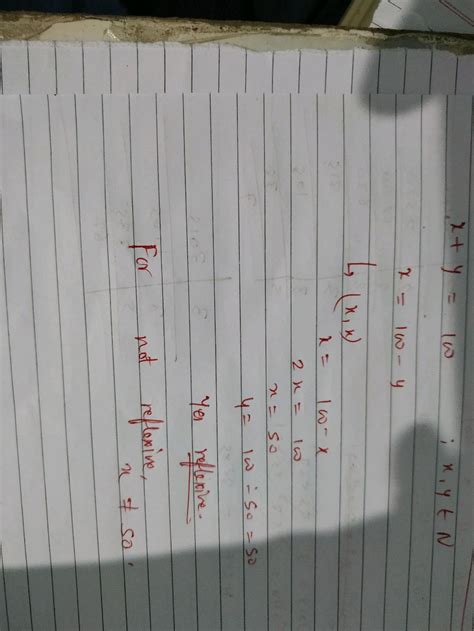 x + y = 100 ; x, y ∈ N
x = 100 - y
↳ (x, x)
x = 100 - x
2x = 100
x = 50
y = 100 - 50 = 50
Yes reflexive.
For not reflexive,
x ≠ 50.